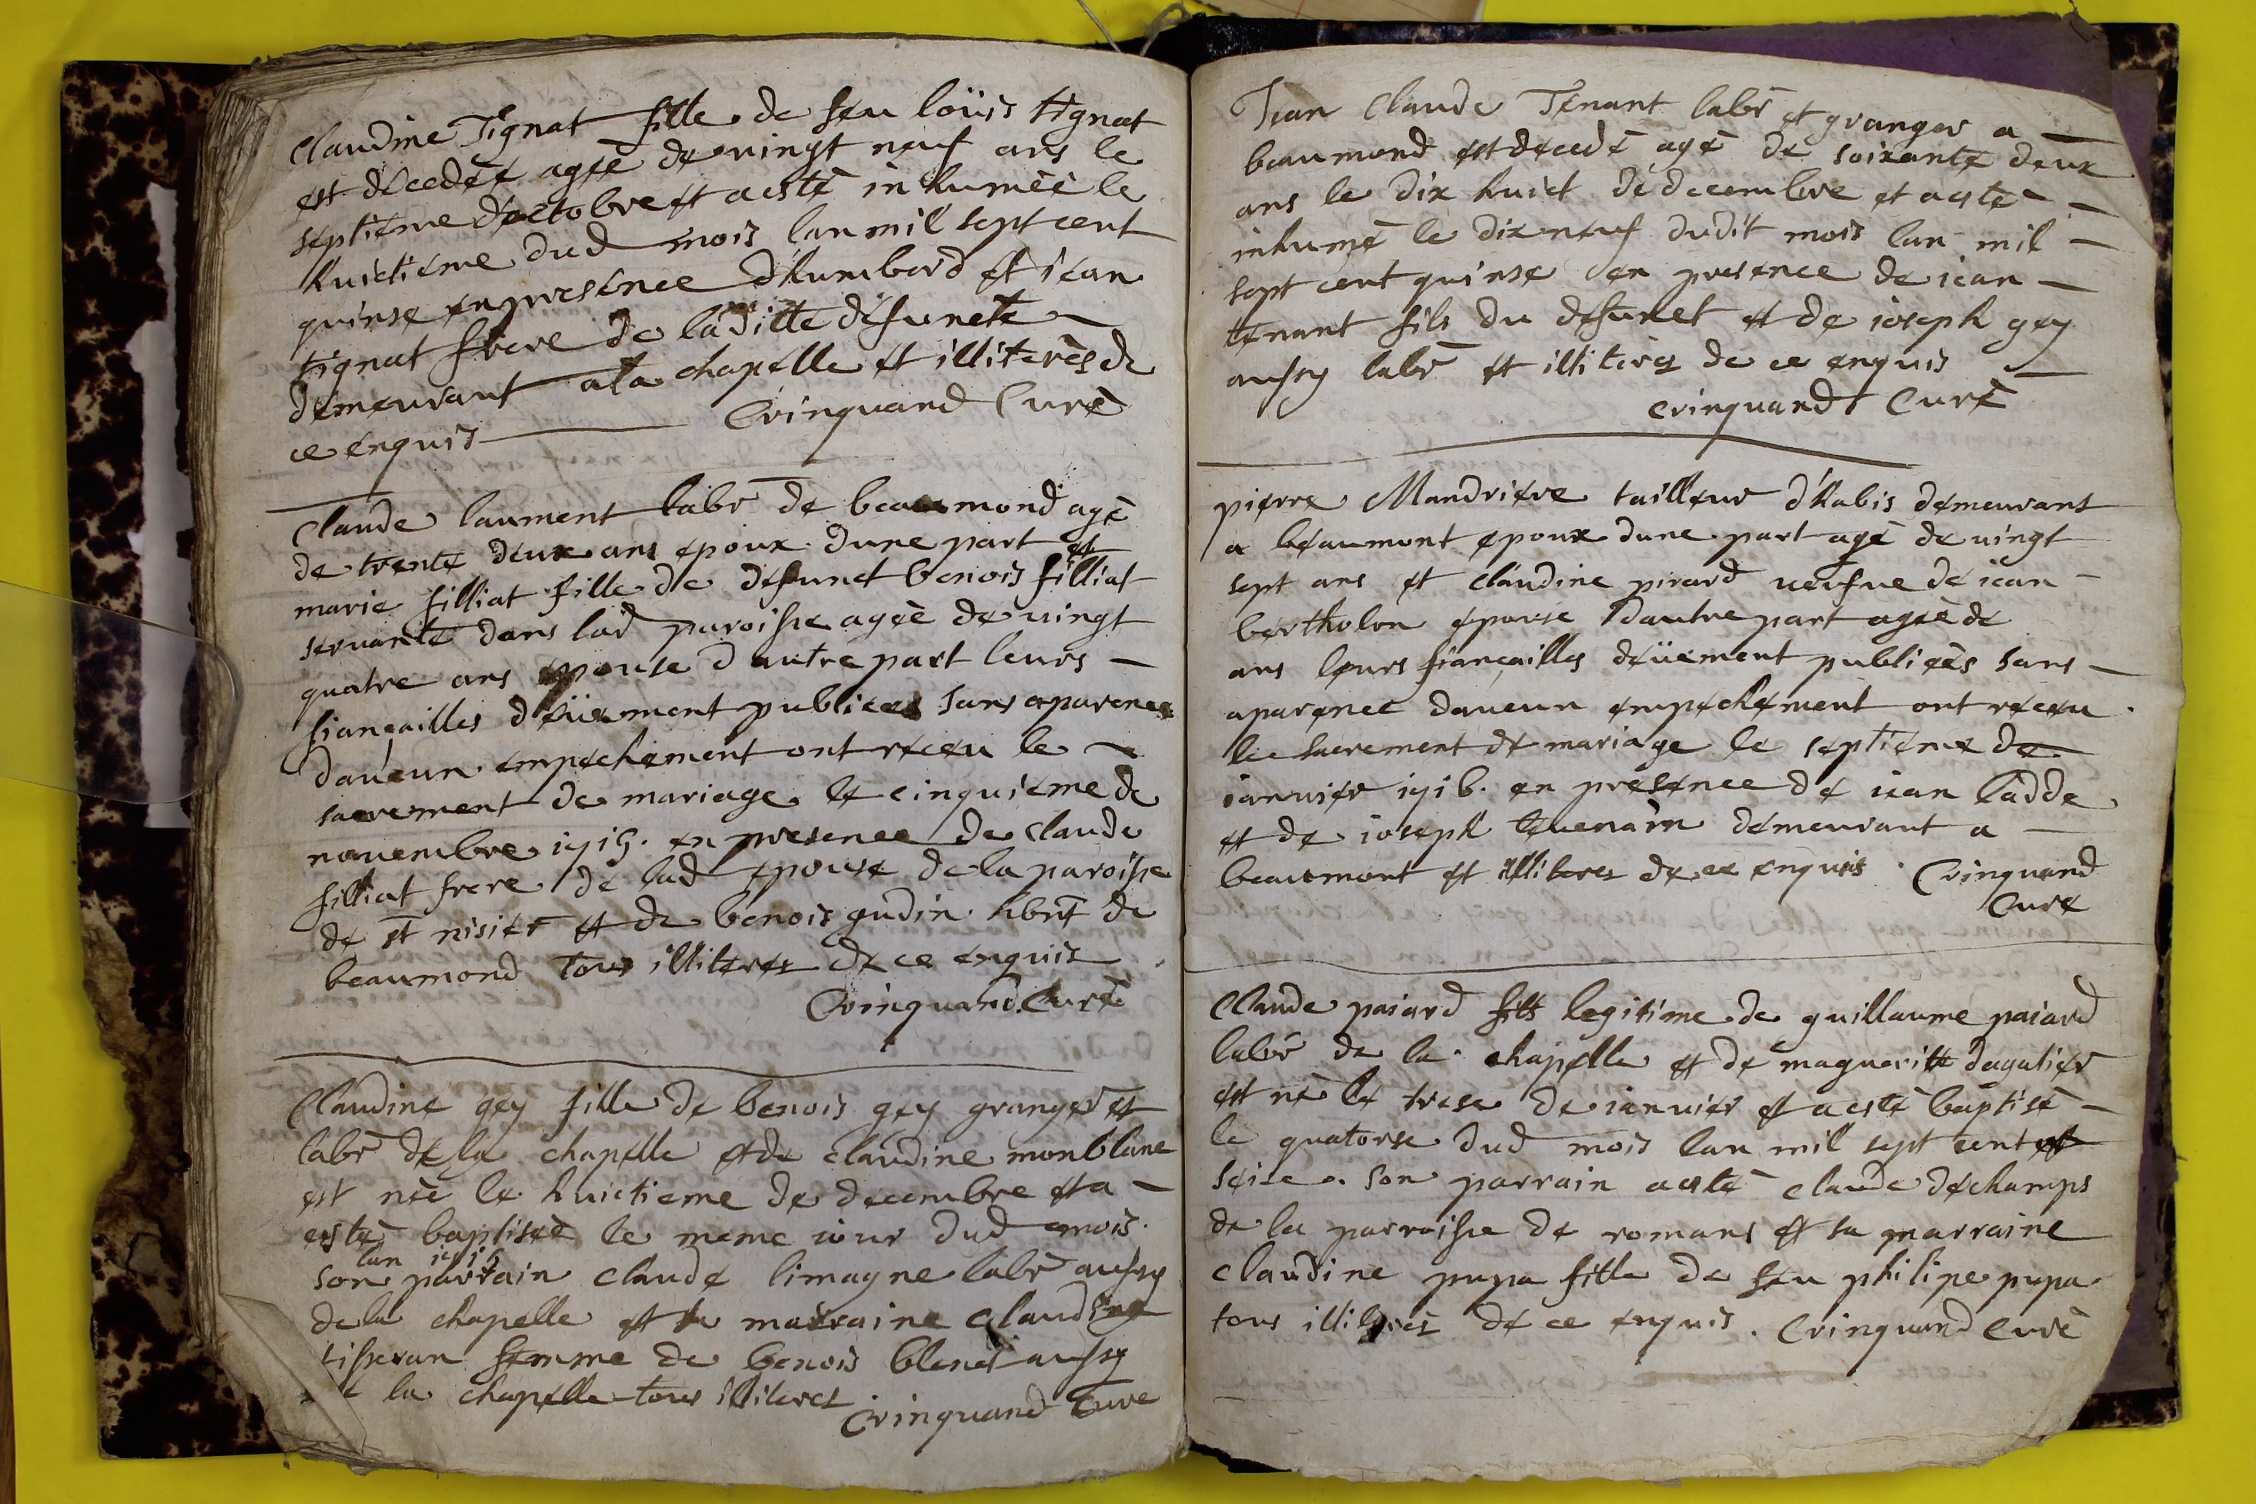 Claudine Tignat fille de feu loüis tignat
est décedèe agèe de vingt neuf ans le
septieme d'octobre et a estè inhumèe le
huictieme dud mois lan mil sept cent
quinse en presence dhumbard et iean
tignat frere de laditte defuncte
demeurant a la chapelle et illiterès de
ce enquis Crinquand Curè
Claude laument labr de beaumond agè
de trente deux ans epoux dune part et
marie filliat fille de defunct benois filliat
servante dans lad paroisse agèe de vingt
quatre ans epouse d autre part leurs
fiançailles düement publices sans aparence
daucun empechement ont receu le
sacrement de mariage le cinquieme de
novembre 1715. en presence de Claude
filliat frere de lad epouse de la paroisse
de st nisier et de benois gudin de
beaumond tous illiteres de ce enquis
Crinquand Curè
Claudine gey fille de benois gey granger et
labr de la chapelle et de claudine monblanc
est nèe le huictieme de decembre et a
estè baptisèe le meme iour dud mois
lan 1715
son parrain claude limagne labr aussy
de la chapelle et sa marraine Claudine
tisseran femme de benois blanc aussy
de la chapelle tous illiteres
Crinquand Cure
Jean Claude Tenant labr et granger a
beaumond est decedè agè de soixante deux
ans le dix huict de decembre et a estè
inhumè le dix neuf dudit mois lan mil
sept cent quinse en presence de iean
tenant fils du defunct et de ioseph gey
aussy labr et illiteres de ce enquis
Crinquand Curè
pierre Mandriere tailleur d'habis demeurant
a beaumont epoux dune part agè de vingt
sept ans et claudine pirard veufve de iean
bertholon epouse dautre part agèe de
ans leurs fiançailles düement publièes sans
aparence daucun empechement ont receu
le sacrement de mariage le septieme de
ianvier 1716. en presence de iean ladde
et de ioseph tevenain demeurant a
beaumont et illiteres de ce enquis Crinquand
Cure
Claude paiard fils legitime de guillaume paiard
labr de la chapelle et de maguerite dagalier
est nè le trese de ianvier et a estè baptisè
le quatorse dud mois lan mil sept cent
seise. son parrain a estè claude dechamps
de la parroisse de romans et sa marraine
claudine pupa fille de feu philipe pupa
tous illiterès de ce enquis. Crinquand Curè